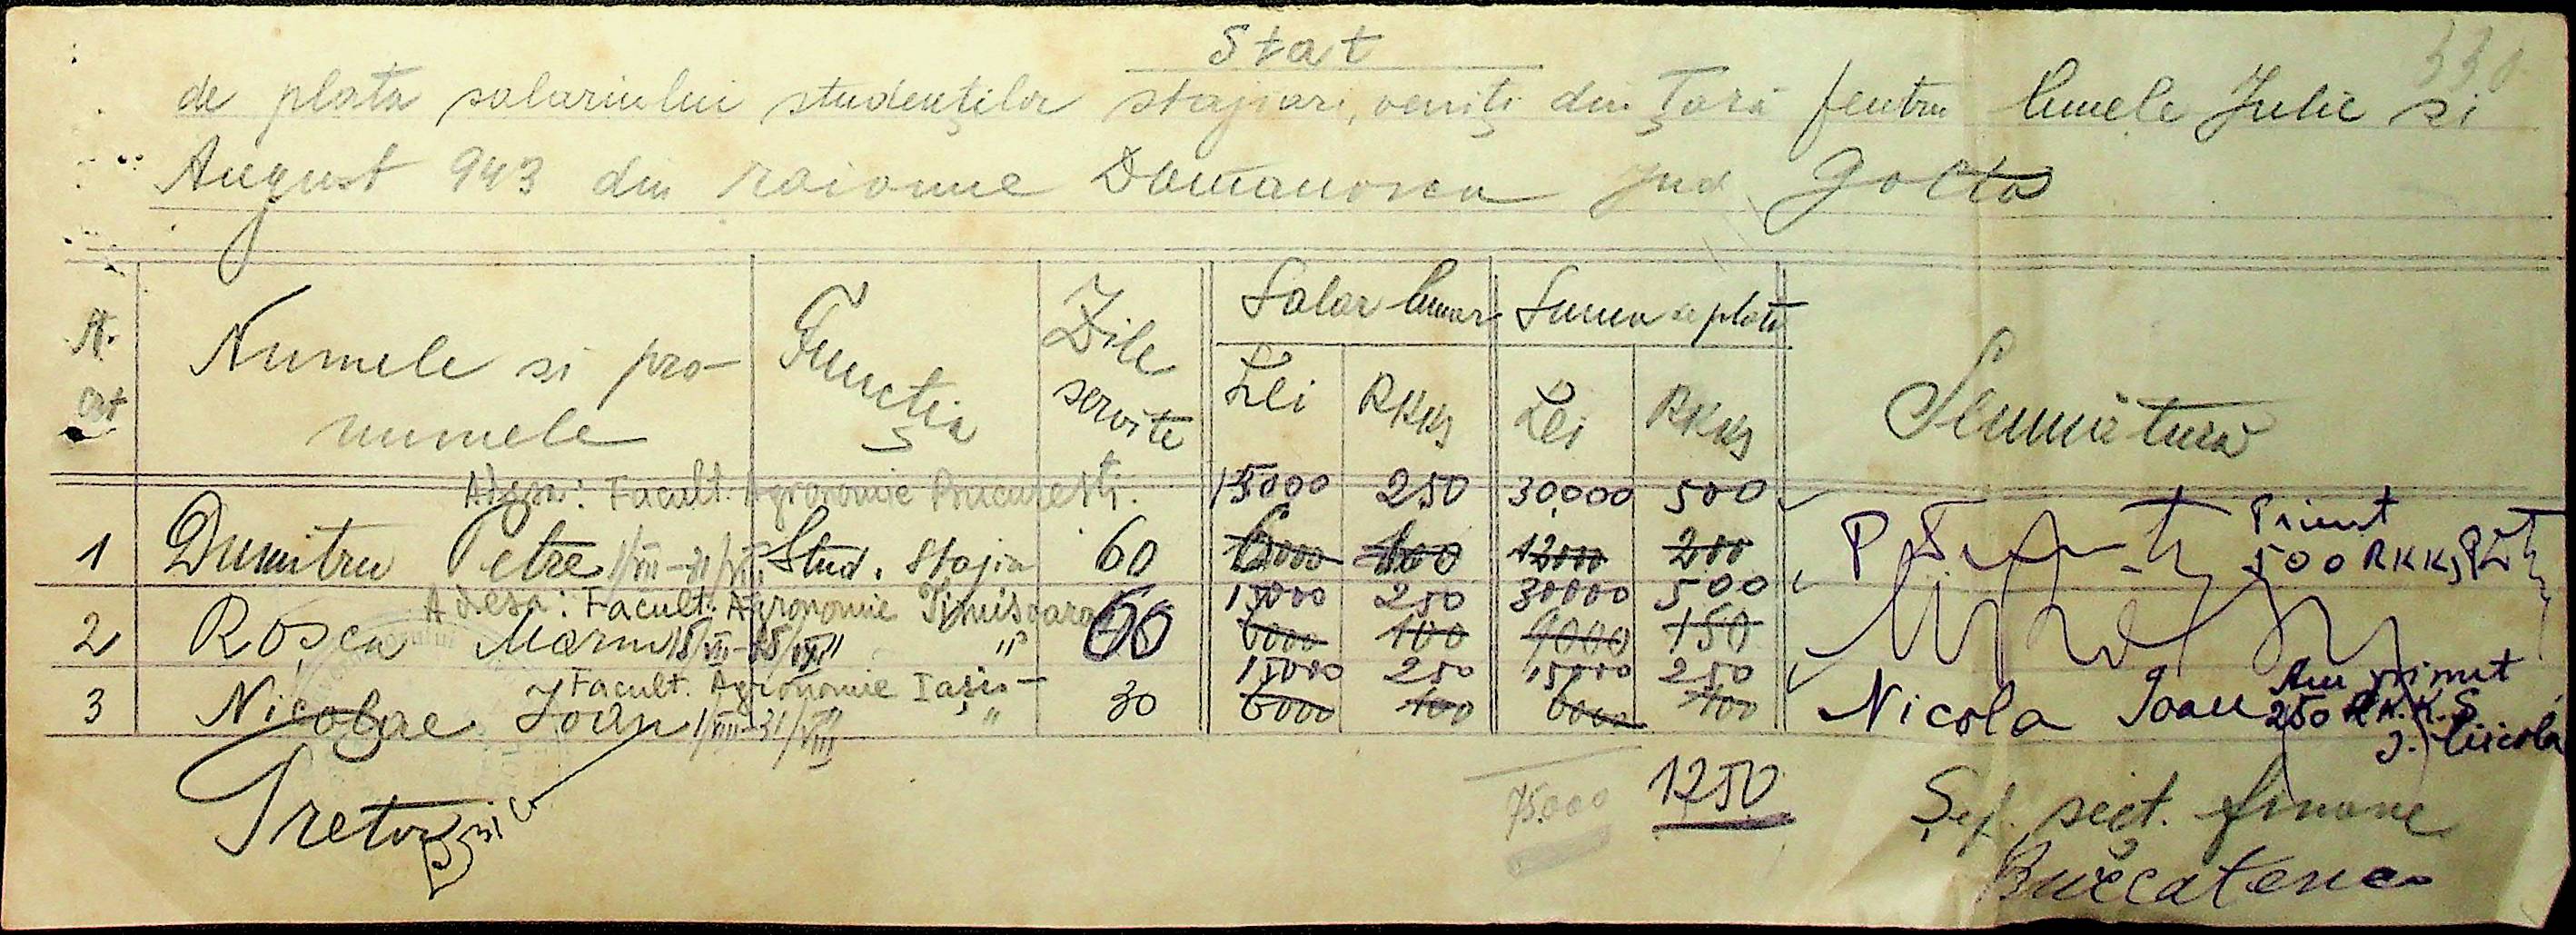 330
Stat
de plata salariului studenților stajiari, veniți din Țară pentru lunele Julie si
August 943 din raionue Domanovca jud Golta
N. crt
Numele si pro-
numele
Funcția
Zile
servite
Salar lunar
Lei RKKS
Suma de plată
Lei RKKS
Semnătura
Adresa: Facult. Agronomie Bucuresti. 15000 250 30,000 500
1 Dumitru Petre 1/VII-31/VIII Stud. Stajiar 60 6000 100 12000 200
Primit
500 RKKS
Adresa: Facult. Agronomie Timisoara 15000 250 30000 500
2 Roșca Marin 15/VII-15/IX " " 60 6000 100 9000 150
Facult. Agronomie Iași 15000 250 15000 250
3 Nicolae Ioan 1/VIII-31/VIII " " 30 6000 100 6000 100 Nicola Ioan
Am primit
250 R.K.K.S
J. Nicola
75.000 1250
Pretor
Șef. sect. financ